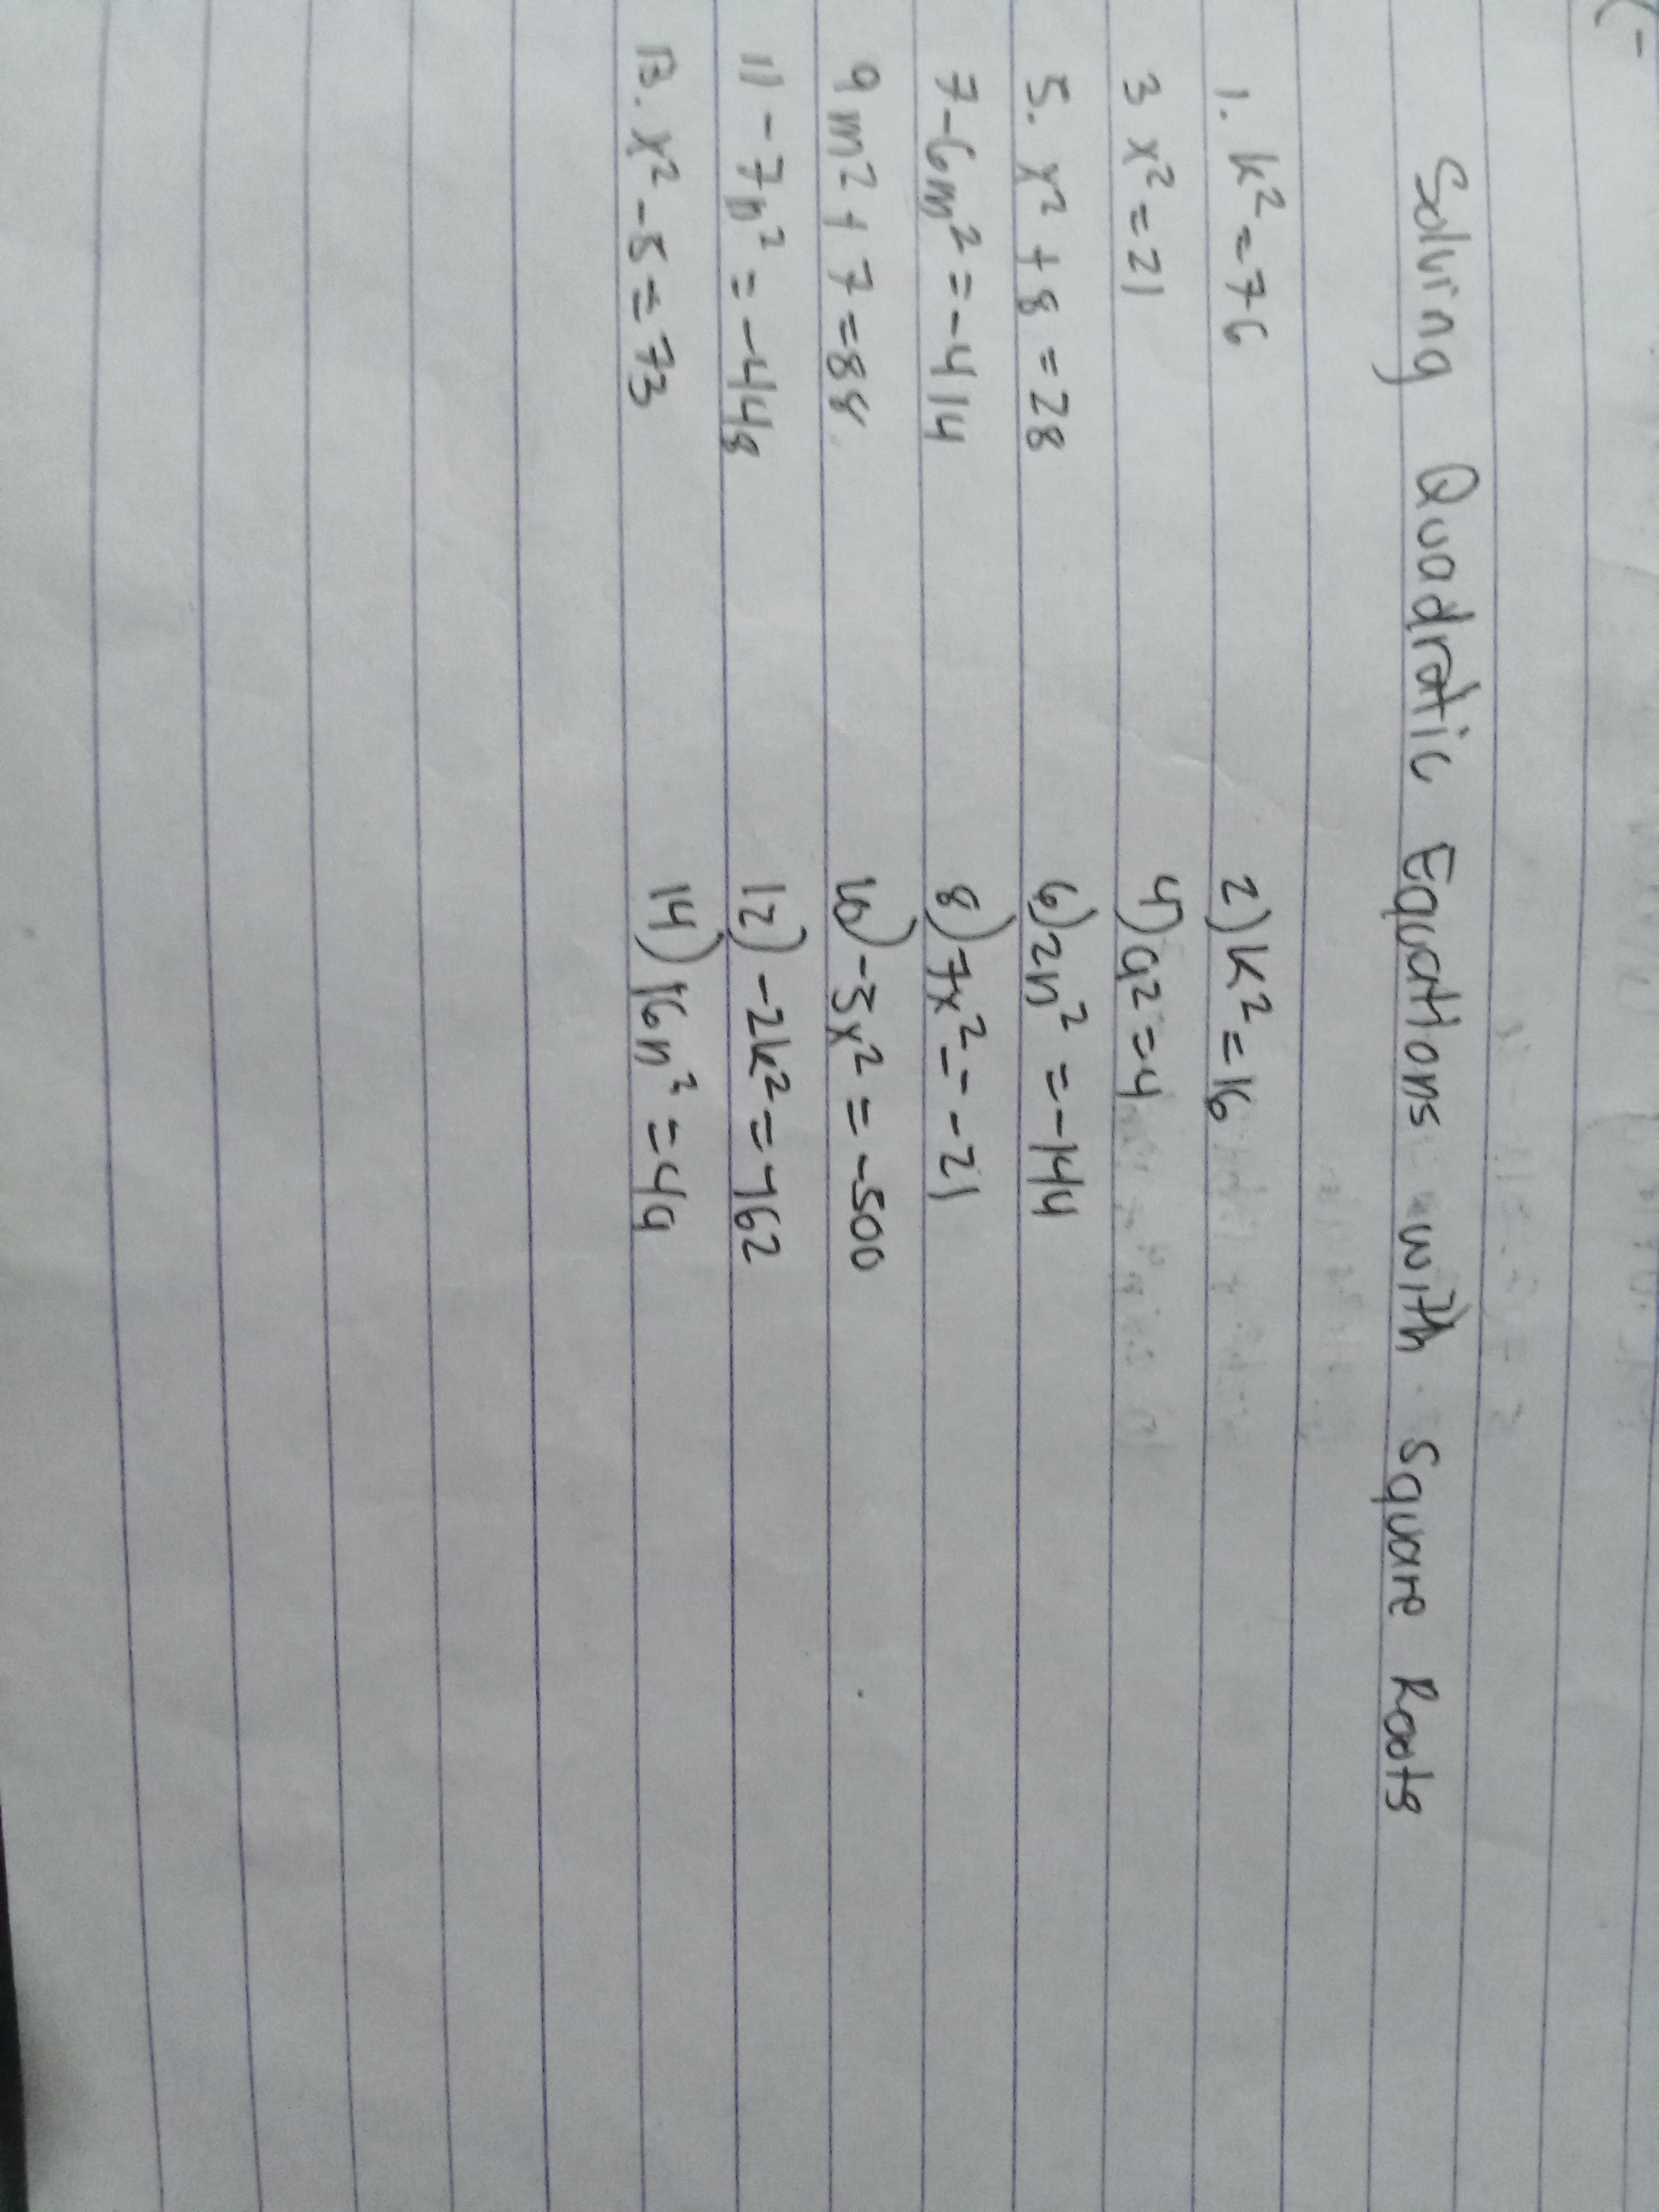 Solving Quadratic Equations with Square Roots
1. k² = 76 2) k² = 16
3 x² = 21 4) a² = 4
5. x² + 8 = 28 6) 2n² = -144
7 -6m² = -414 8) 7x² = -21
9 m² + 7 = 88 10) -5x² = -500
11 -7n² = -448 12) -2k² = 162
13. x² - 5 = 73 14) 16n² = 49